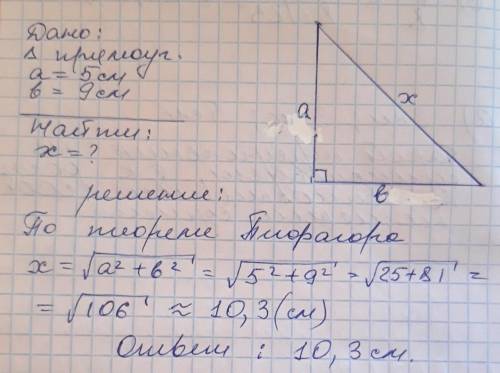 Дано:
Δ прямоуг.
a = 5 см
в = 9 см
Найти:
x = ?
a
x
в
решение:
По теореме Пифагора
x = √a² + в² = √5² + 9² = √25 + 81 =
= √106 ≈ 10,3 (см)
Ответ: 10,3 см.